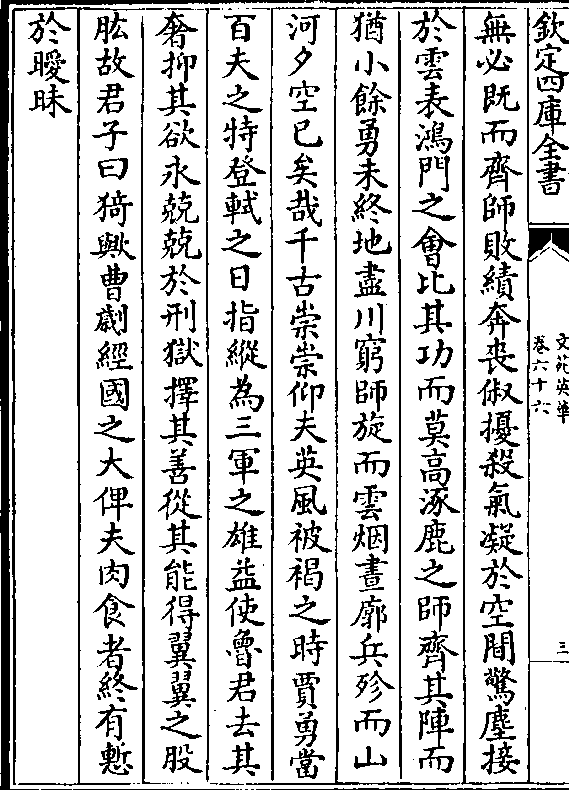 欽定四庫全書
文苑英華
卷六十六
三
無必既而齊師敗績奔喪俶擾殺氣凝於空間驚塵接
於雲表鴻門之會比其功而莫高涿鹿之師齊其陣而
猶小餘勇未終地盡川窮師旋而雲烟晝廓兵殄而山
河夕空已矣哉千古崇崇仰夫英風被褐之時賈勇當
百夫之特登軾之日指縱為三軍之雄益使魯君去其
奢抑其欲永兢兢於刑獄擇其善從其能得翼翼之股
肱故君子曰猗歟曹劌經國之大俾夫肉食者終有慙
於曖昧